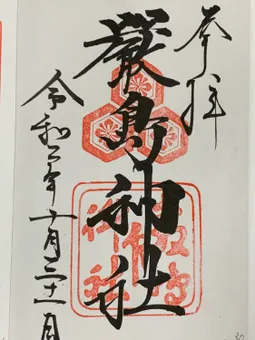 奉拝
嚴島神社
令和年十月十一日